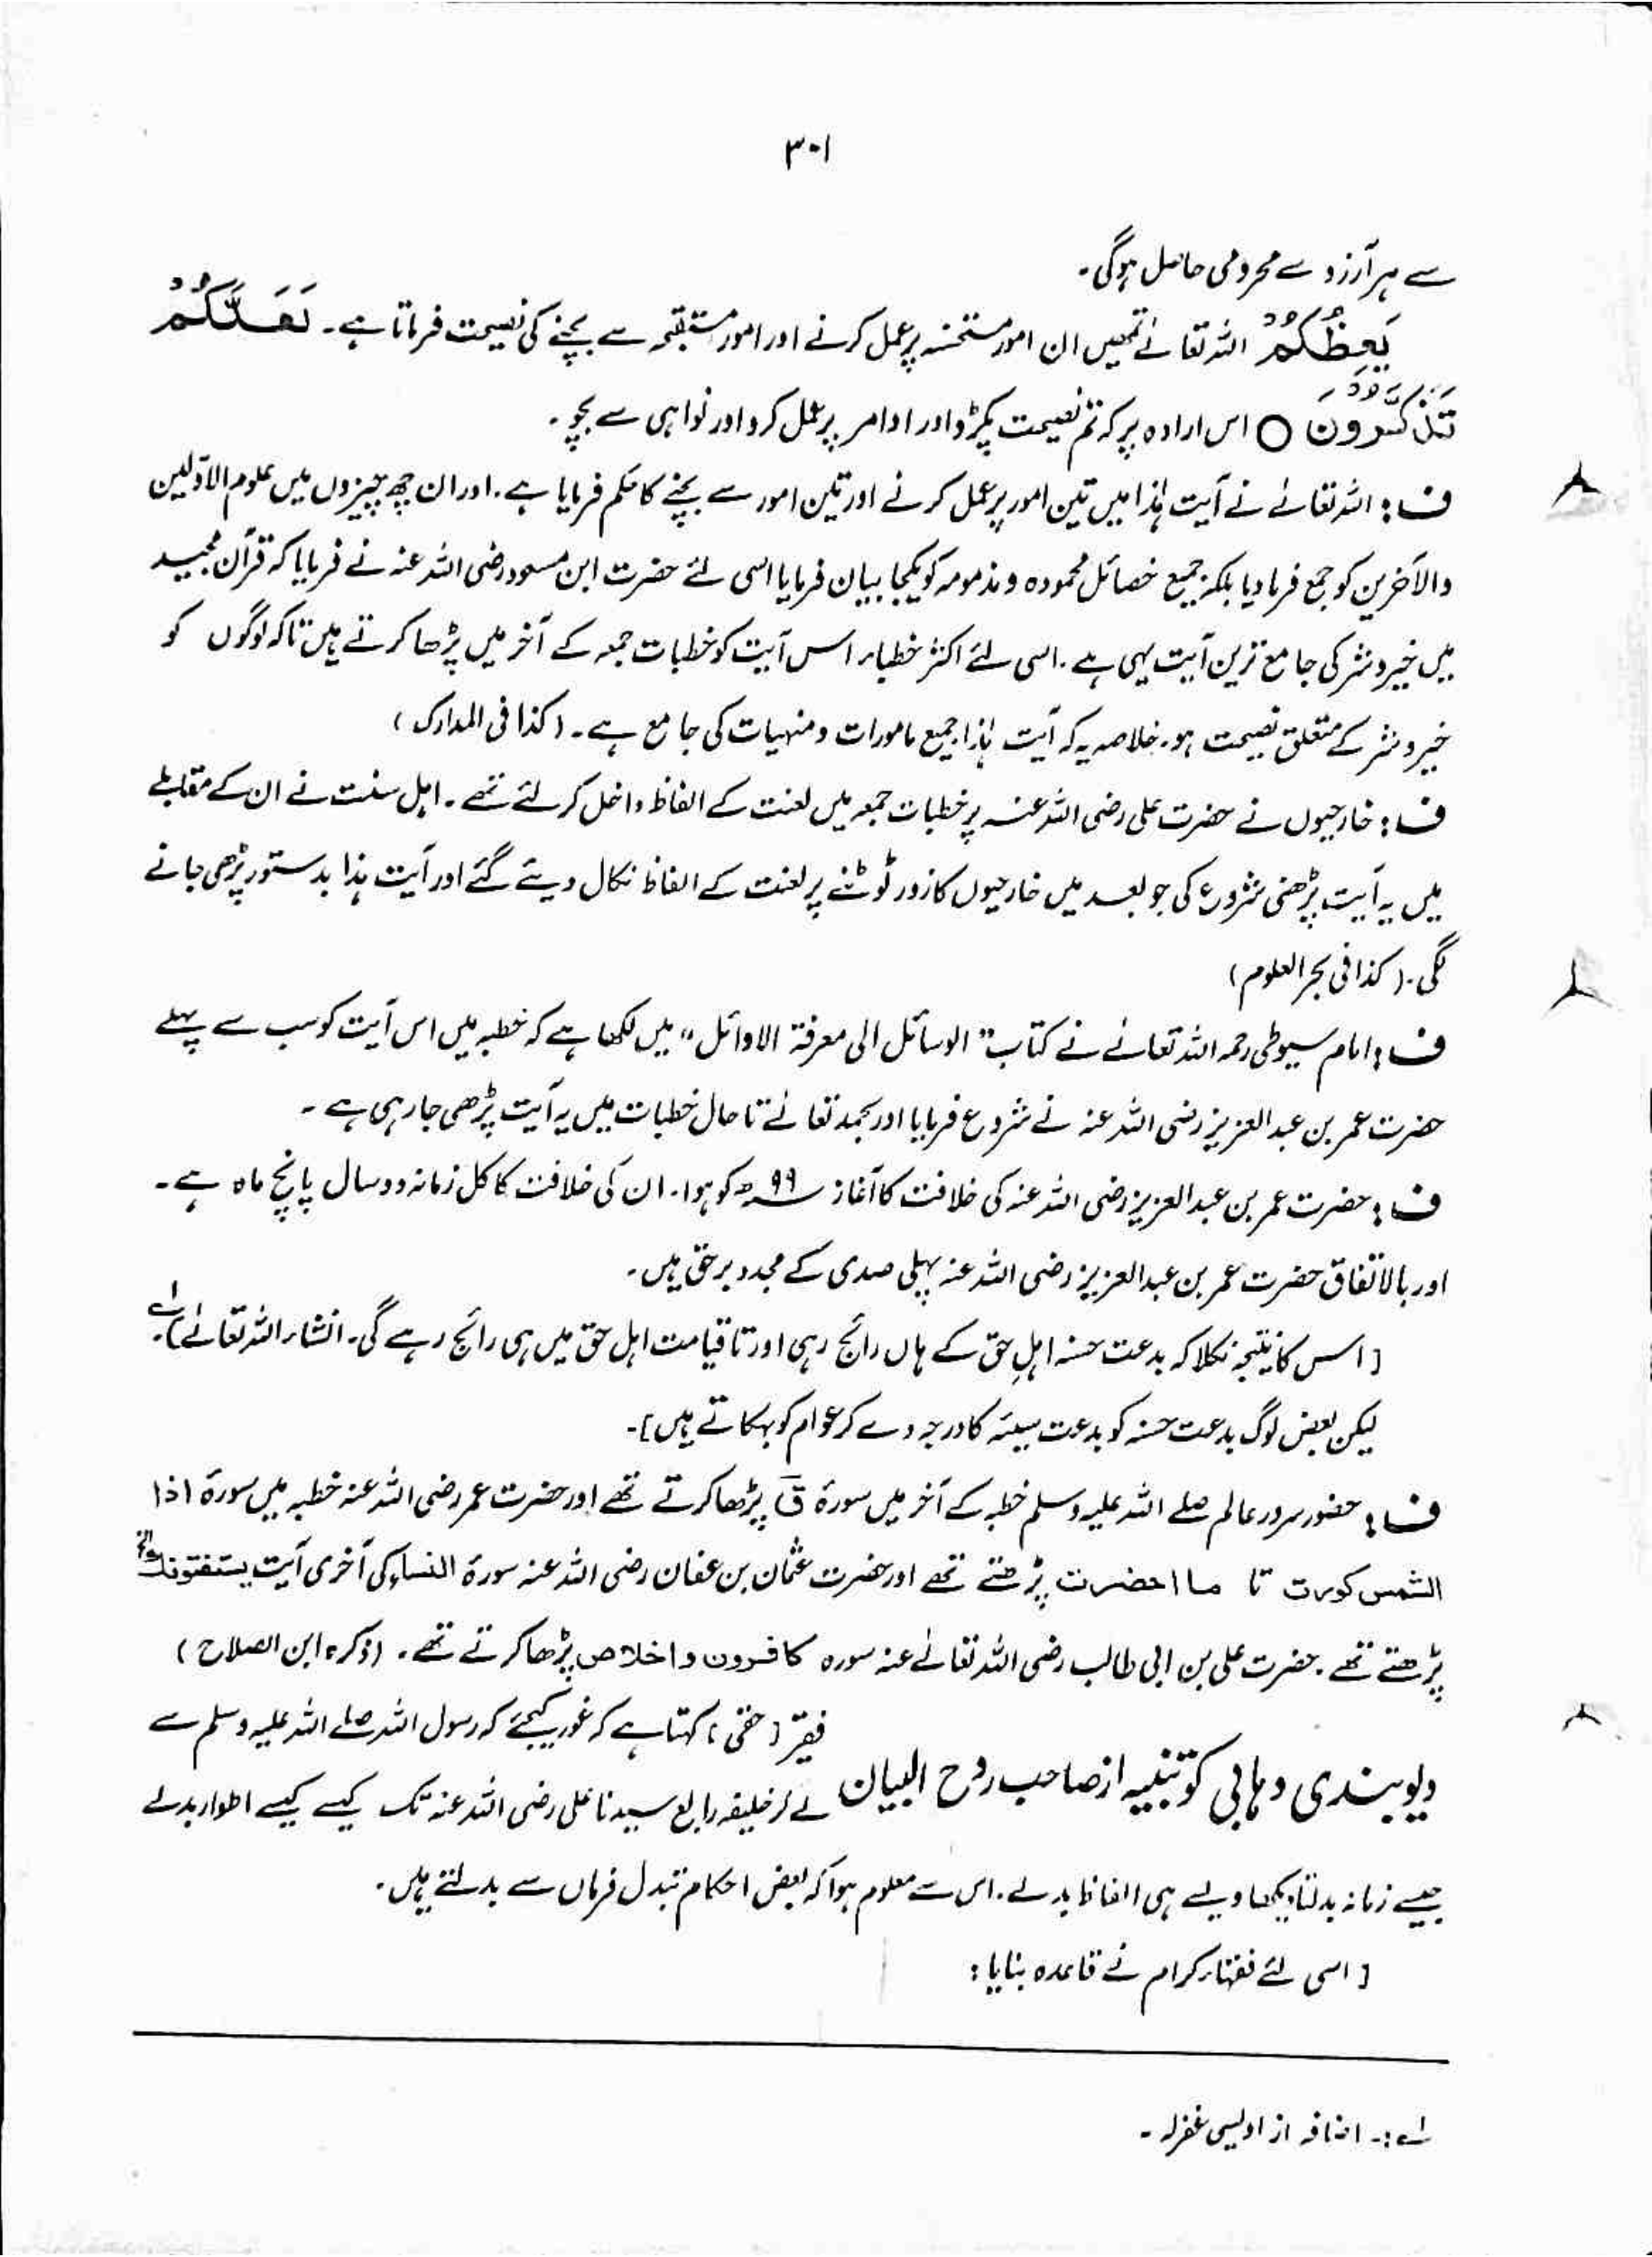 ۳۰۱
سے ہر آرزو سے محرومی حاصل ہوگی۔
يَعِظُكُمْ اللہ تعالےٰ تمہیں ان امور مستحسنہ پر عمل کرنے اور امور مستقبحہ سے بچنے کی نصیحت فرماتا ہے۔ لَعَلَّكُمْ
تَذَكَّرُونَ ○ اس ارادہ پر کہ تم نصیحت پکڑو اور اوامر پر عمل کرو اور نواہی سے بچو۔
ف : اللہ تعالےٰ نے آیت ہٰذا میں تین امور پر عمل کرنے اور تین امور سے بچنے کا حکم فرمایا ہے۔ اور ان چھ چیزوں میں علوم الاوّلین
والآخرین کو جمع فرما دیا بلکہ جمیع خصائل محمودہ و مذمومہ کو یکجا بیان فرمایا اسی لئے حضرت ابن مسعود رضی اللہ عنہ نے فرمایا کہ قرآن مجید
میں خیر و شر کی جامع ترین آیت یہی ہے۔ اسی لئے اکثر خطباء اس آیت کو خطبات جمعہ کے آخر میں پڑھا کرتے ہیں تاکہ لوگوں کو
خیر و شر کے متعلق نصیحت ہو۔ خلاصہ یہ کہ آیت ہٰذا جمیع مامورات و منہیات کی جامع ہے۔ (کذا فی المدارک)
ف : خارجیوں نے حضرت علی رضی اللہ عنہ پر خطبات جمعہ میں لعنت کے الفاظ داخل کر لئے تھے۔ اہل سنت نے ان کے مقابلے
میں یہ آیت پڑھنی شروع کی جو بعد میں خارجیوں کا زور ٹوٹنے پر لعنت کے الفاظ نکال دیئے گئے اور آیت ہذا بدستور پڑھی جانے
لگی۔ (کذا فی بحر العلوم)
ف : امام سیوطی رحمہ اللہ تعالےٰ نے کتاب "الوسائل الی معرفۃ الاوائل" میں لکھا ہے کہ خطبہ میں اس آیت کو سب سے پہلے
حضرت عمر بن عبد العزیز رضی اللہ عنہ نے شروع فرمایا اور بحمدہ تعالےٰ تا حال خطبات میں یہ آیت پڑھی جا رہی ہے۔
ف : حضرت عمر بن عبد العزیز رضی اللہ عنہ کی خلافت کا آغاز ۹۹ھ کو ہوا۔ ان کی خلافت کا کل زمانہ دو سال پانچ ماہ ہے۔
اور بالاتفاق حضرت عمر بن عبد العزیز رضی اللہ عنہ پہلی صدی کے مجدد برحق ہیں۔
[ اس کا نتیجہ نکلا کہ بدعت حسنہ اہلِ حق کے ہاں رائج رہی اور تا قیامت اہل حق میں ہی رائج رہے گی۔ انشاء اللہ تعالےٰ)۔ ؎۱
لیکن بعض لوگ بدعت حسنہ کو بدعت سیئہ کا درجہ دے کر عوام کو بہکاتے ہیں]۔
ف : حضور سرور عالم صلے اللہ علیہ وسلم خطبہ کے آخر میں سورۂ قٓ پڑھا کرتے تھے اور حضرت عمر رضی اللہ عنہ خطبہ میں سورۃ اذا
الشمس کورت تا ما احضرت پڑھتے تھے اور حضرت عثمان بن عفان رضی اللہ عنہ سورۃ النساء کی آخری آیت یستفتونک الخ
پڑھتے تھے۔ حضرت علی بن ابی طالب رضی اللہ تعالےٰ عنہ سورہ کافرون و اخلاص پڑھا کرتے تھے۔ (ذکرہ ابن الصلاح)
فقیر (حقی) کہتا ہے کہ غور کیجئے کہ رسول اللہ صلے اللہ علیہ وسلم سے
دیوبندی وہابی کو تنبیہ از صاحب روح البیان لے کر خلیفہ رابع سیدنا علی رضی اللہ عنہ تک کیسے کیسے اطوار بدلے
جیسے زمانہ بدلتا دیکھا ویسے ہی الفاظ بدلے۔ اس سے معلوم ہوا کہ بعض احکام تبدل زماں سے بدلتے ہیں۔
[ اسی لئے فقہاء کرام نے قاعدہ بنایا :
؎۱ :۔ اضافہ از اویسی غفرلہ ۔